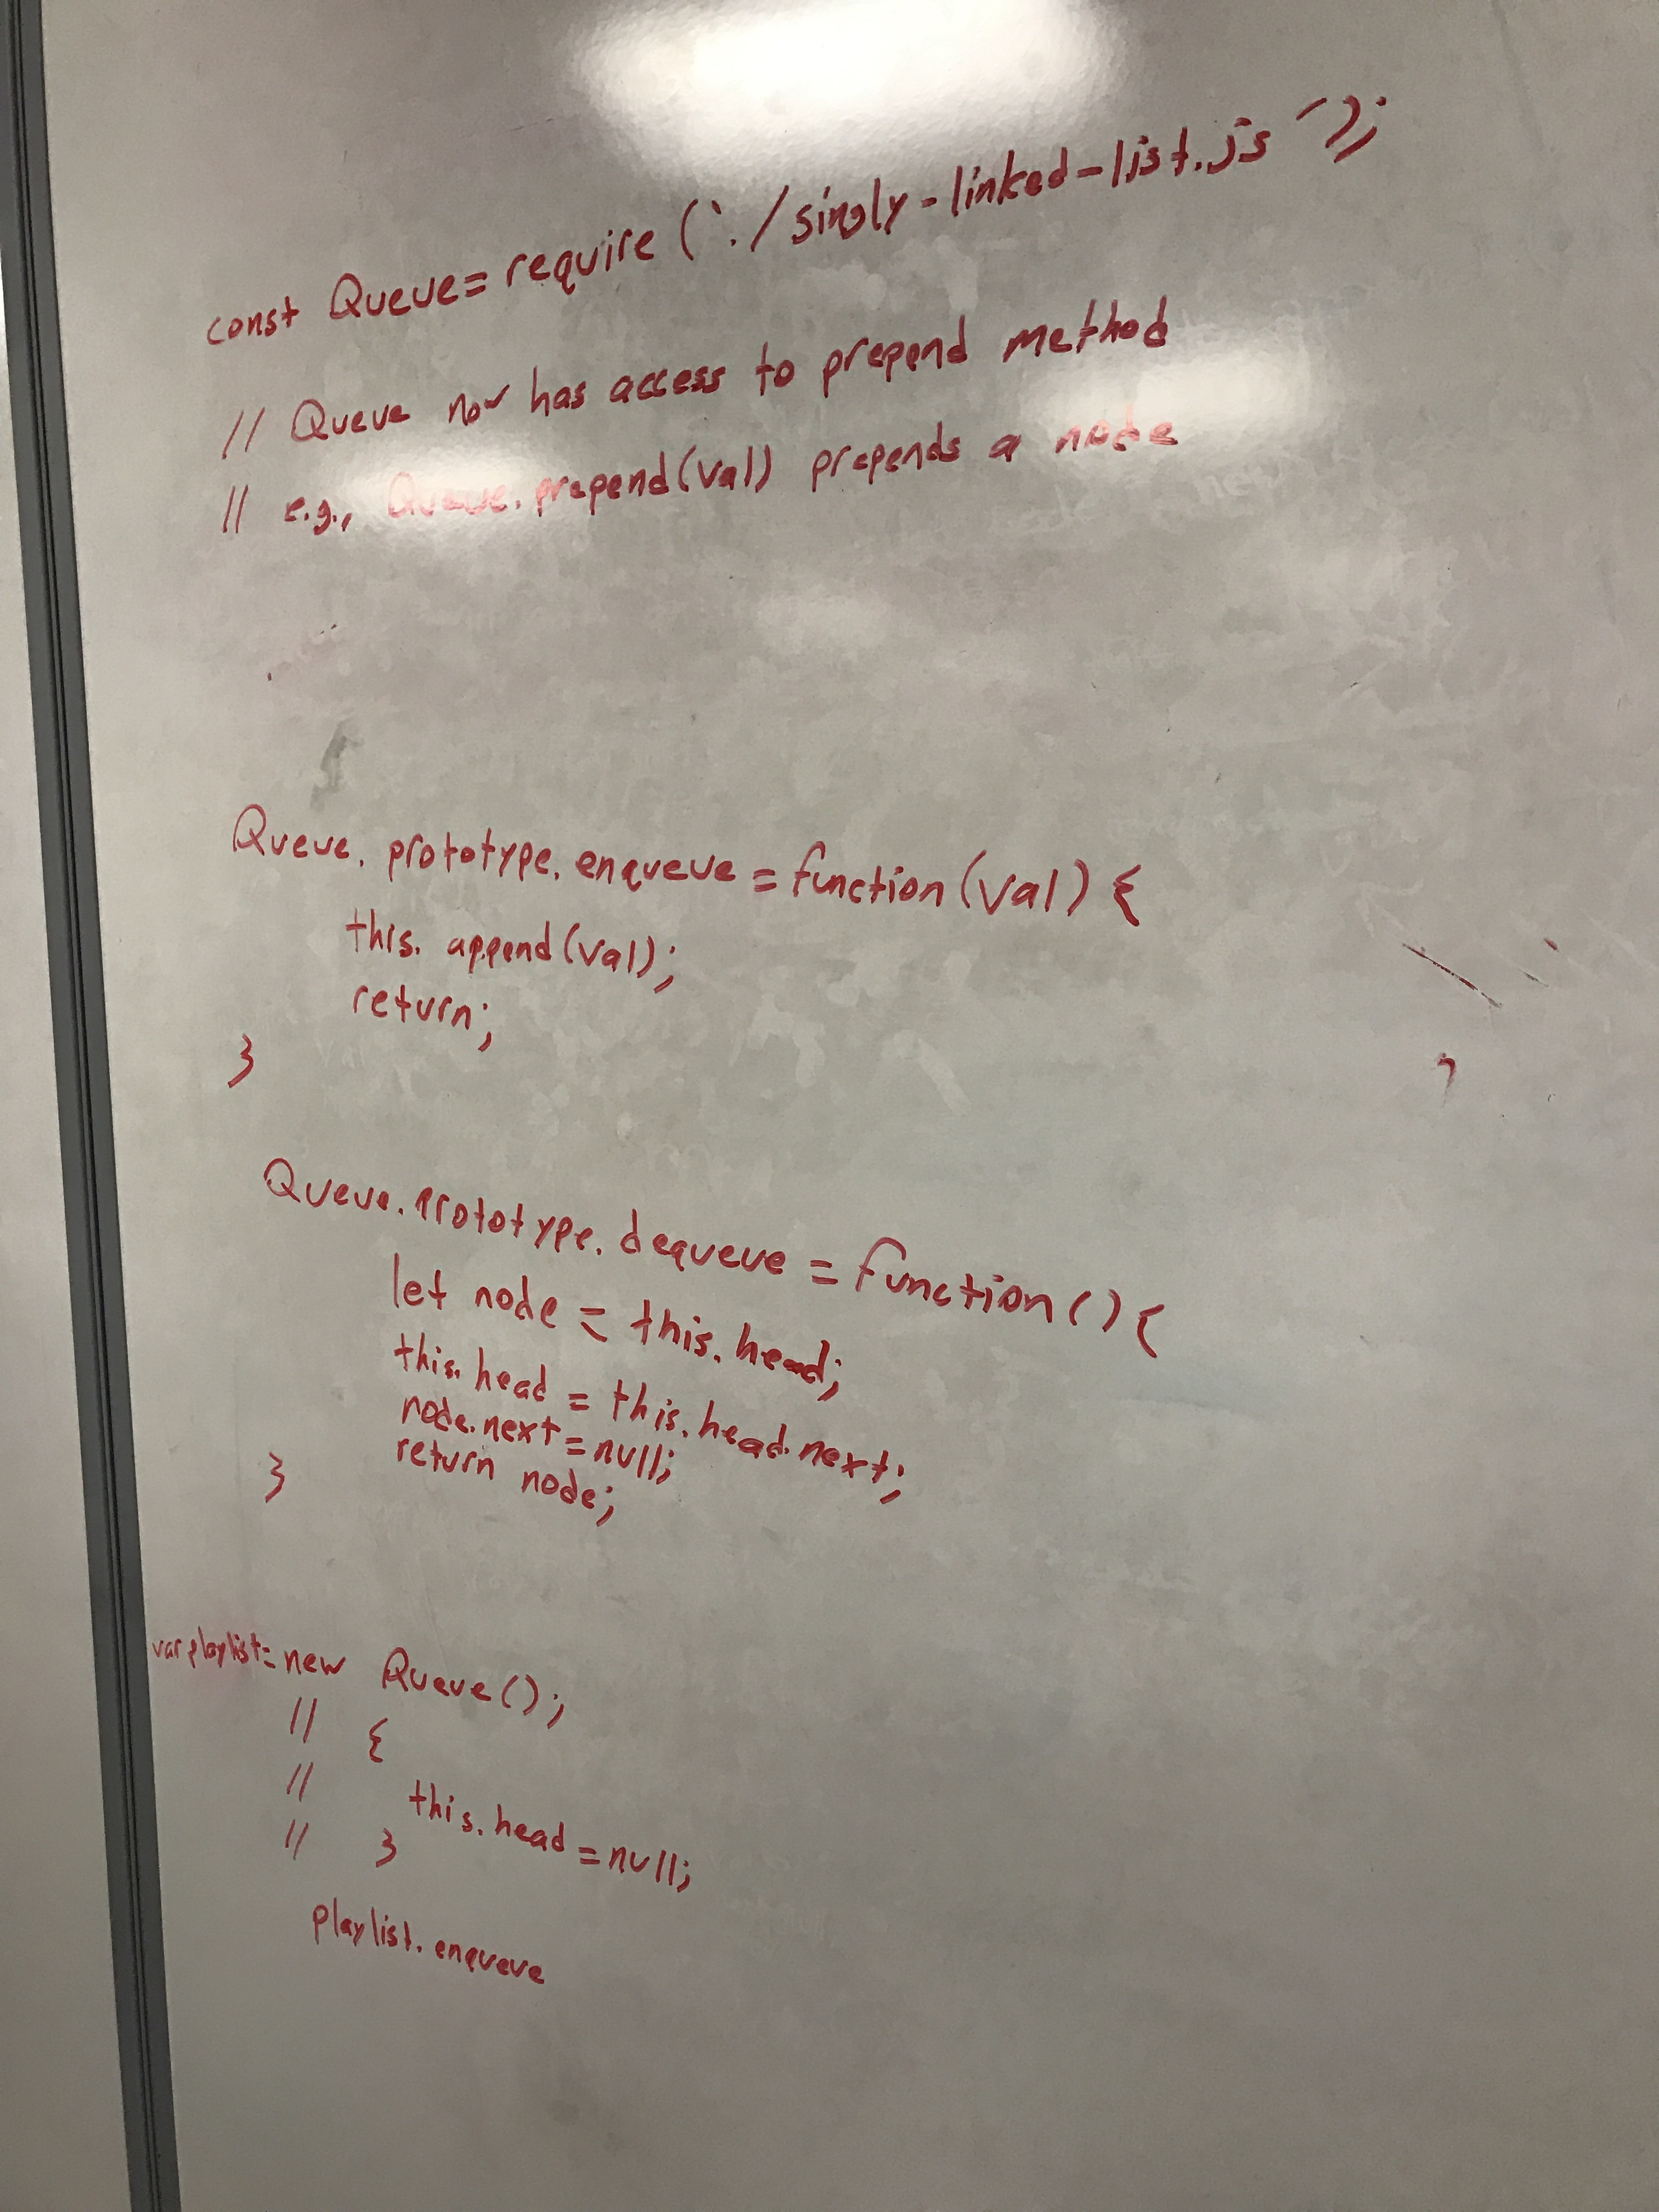 const Queue= require ('./singly-linked-list.js');
// Queue now has access to prepend method
// e.g., Queue.prepend(val) prepends a node
Queue.prototype.enqueue = function(val) {
this.append(val);
return;
}
Queue.prototype.dequeue = function() {
let node = this.head;
this.head = this.head.next;
node.next = null;
return node;
}
var playlist= new Queue();
// {
// this.head = null;
// }
playlist.enqueue